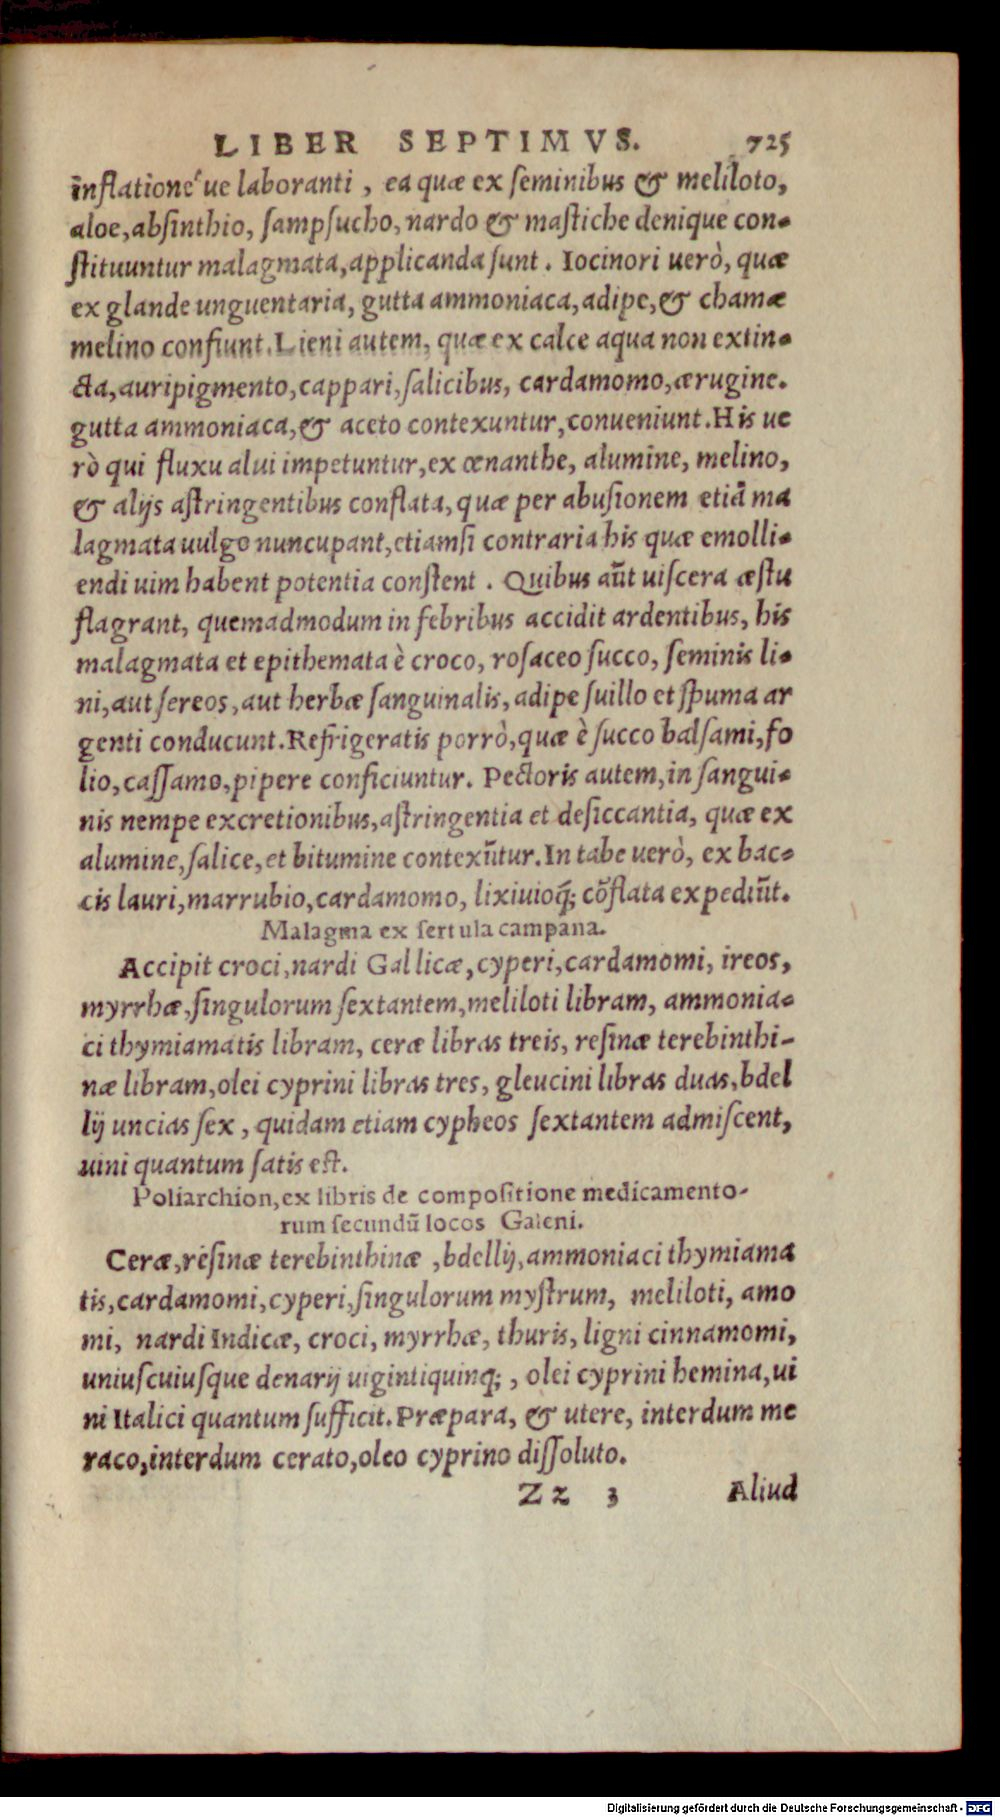 LIBER SEPTIMVS. 725
inflatione'ue laboranti, ea quæ ex ſeminibus & meliloto,
aloe, abſinthio, ſampſucho, nardo & maſtiche denique con-
ſtituuntur malagmata, applicanda ſunt. Iocinori uerò, quæ
ex glande unguentaria, gutta ammoniaca, adipe, & chamæ
melino confiunt. Lieni autem, quæ ex calce aqua non extin-
cta, auripigmento, cappari, ſalicibus, cardamomo, ærugine.
gutta ammoniaca, & aceto contexuntur, conueniunt. His ue
rò qui fluxu alui impetuntur, ex œnanthe, alumine, melino,
& alijs aſtringentibus conflata, quæ per abuſionem etiã ma
lagmata uulgo nuncupant, etiamſi contraria his quæ emolli-
endi uim habent potentia conſtent. Quibus aũt uiſcera æſtu
flagrant, quemadmodum in febribus accidit ardentibus, his
malagmata et epithemata è croco, roſaceo ſucco, ſeminis li-
ni, aut ſereos, aut herbæ ſanguinalis, adipe ſuillo et ſpuma ar
genti conducunt. Refrigeratis porrò, quæ è ſucco balſami, fo
lio, caſſamo, pipere conficiuntur. Pectoris autem, in ſangui-
nis nempe excretionibus, aſtringentia et deſiccantia, quæ ex
alumine, ſalice, et bitumine contexũtur. In tabe uerò, ex bac-
cis lauri, marrubio, cardamomo, lixiuioq́; cõflata expediũt.
Malagma ex ſertula campana.
Accipit croci, nardi Gallicæ, cyperi, cardamomi, ireos,
myrrhæ, ſingulorum ſextantem, meliloti libram, ammonia-
ci thymiamatis libram, ceræ libras treis, reſinæ terebinthi-
næ libram, olei cyprini libras tres, gleucini libras duas, bdel
lij uncias ſex, quidam etiam cypheos ſextantem admiſcent,
uini quantum ſatis eſt.
Poliarchion, ex libris de compoſitione medicamento-
rum ſecundũ locos Galeni.
Ceræ, reſinæ terebinthinæ, bdellij, ammoniaci thymiama
tis, cardamomi, cyperi, ſingulorum myſtrum, meliloti, amo
mi, nardi Indicæ, croci, myrrhæ, thuris, ligni cinnamomi,
uniuſcuiuſque denarij uigintiquinq;, olei cyprini hemina, ui
ni Italici quantum ſufficit. Præpara, & utere, interdum me
raco, interdum cerato, oleo cyprino diſſoluto.
Zz 3 Aliud
Digitalisierung gefördert durch die Deutsche Forschungsgemeinschaft - DFG